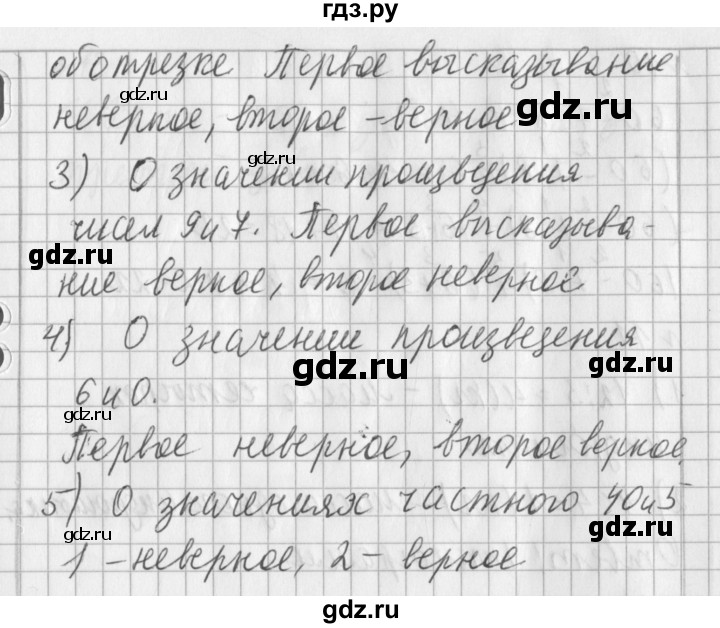 гдз.ру
об отрезке Первое высказывание
неверное, второе – верное
3) О значении произведения
чисел 9 и 7. Первое высказыва-
ние верное, второе неверное
4) О значении произведения
6 и 0.
Первое неверное, второе верное
5) О значениях частного 40 и 5
1 – неверное, 2 – верное
gdz.ru
gdz.ru
gdz.ru
gdz.ru
gdz.ru
gdz.ru
gdz.ru
gdz.ru
gdz.ru
gdz.ru
gdz.ru